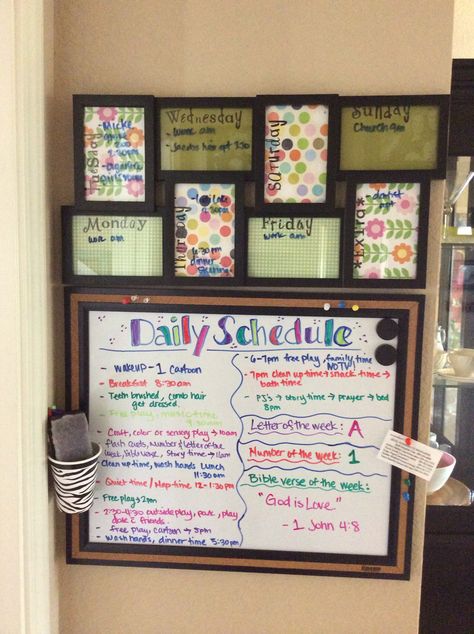 Tuesday
Wednesday
- work am
- Jacobs hair apt 130
Saturday
Sunday
Church 9am
Monday
work am
Thursday
6:30pm
dinner
Friday
work am
*Extra*
- dentist
Daily Schedule
- wakeup - 1 cartoon
- Breakfast 8:30am
- Teeth brushed, comb hair
get dressed.
- Free play, music time
9:30am
- Craft, color or sensory play → 10am
flash cards, number & letter of the
week, → 11am
story time
- Clean up time, wash hands Lunch
11:30am
- Quiet time / Nap-time 12-1:30pm
- Free play → 2pm
- 2:30-4:30 outside play, park, play
date & friends.
- free play, cartoon → 5pm
- wash hands, dinner time 5:30pm
- 6-7pm free play, family time
NO TV!!
- 7pm clean up time → snack time →
bath time
- PJ's → story time → prayer → bed
8pm
Letter of the week: A
Number of the week: 1
Bible verse of the week:
"God is Love"
- 1 John 4:8